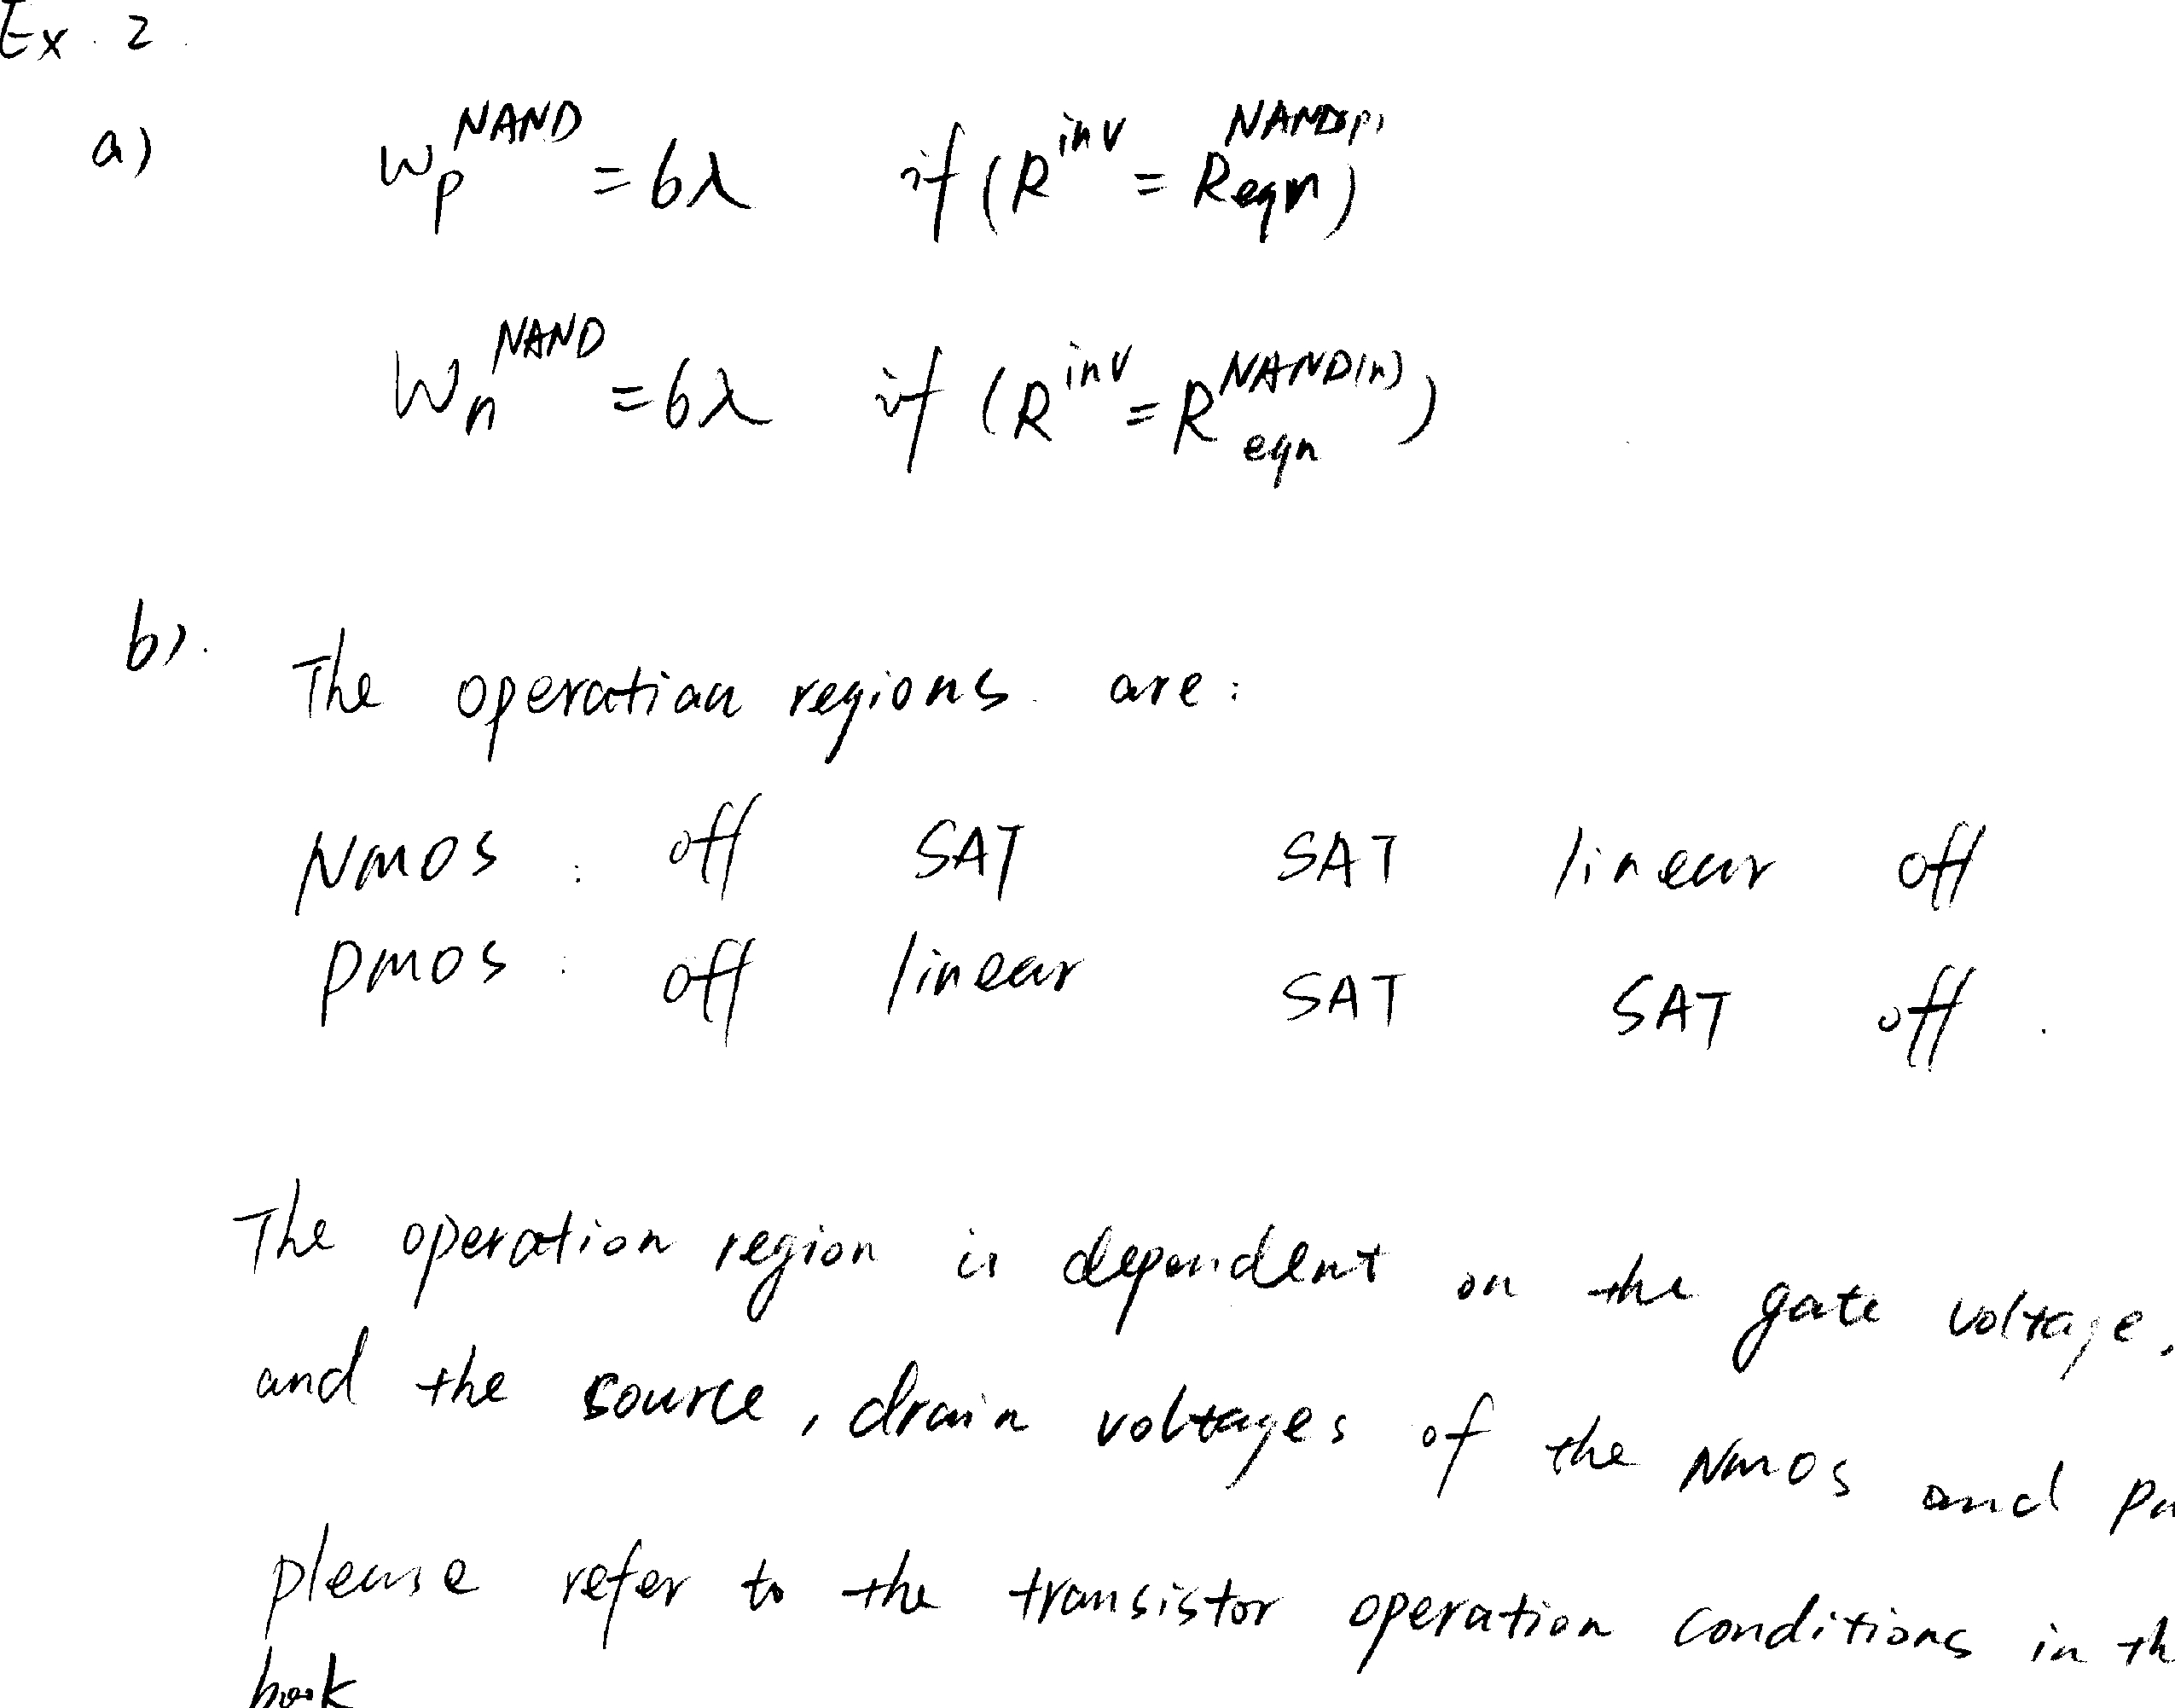 Ex. 2.
a) W_p^NAND = 6λ if (R^inv = R_eqn^NAND(p))
W_n^NAND = 6λ if (R^inv = R_eqn^NAND(n))
b). The operation regions are:
NMOS: off SAT SAT linear off
PMOS: off linear SAT SAT off.
The operation region is dependent on the gate voltage,
and the source, drain voltages of the NMOS and
please refer to the transistor operation conditions in
book